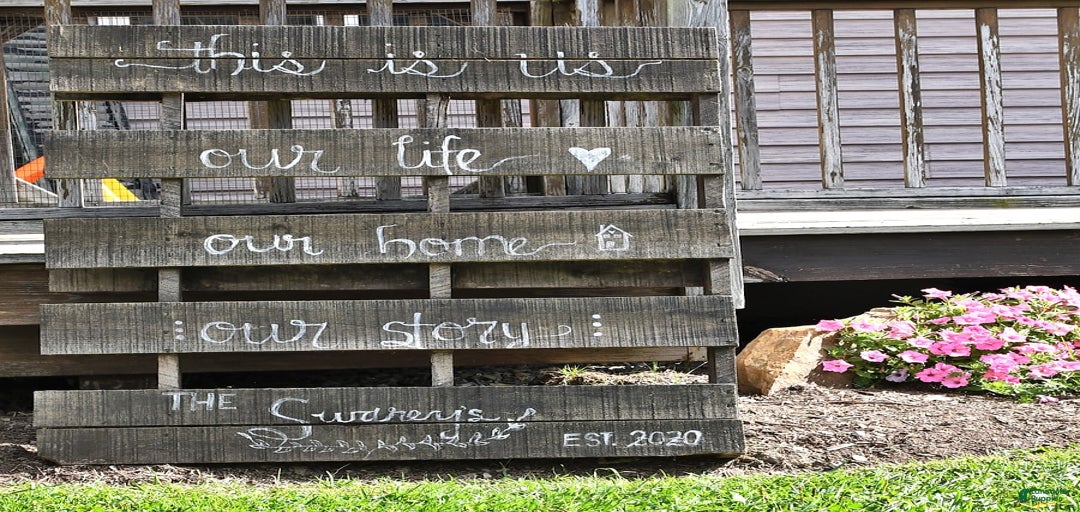 this is us
our life
our home
our story
THE Swarey's
EST. 2020